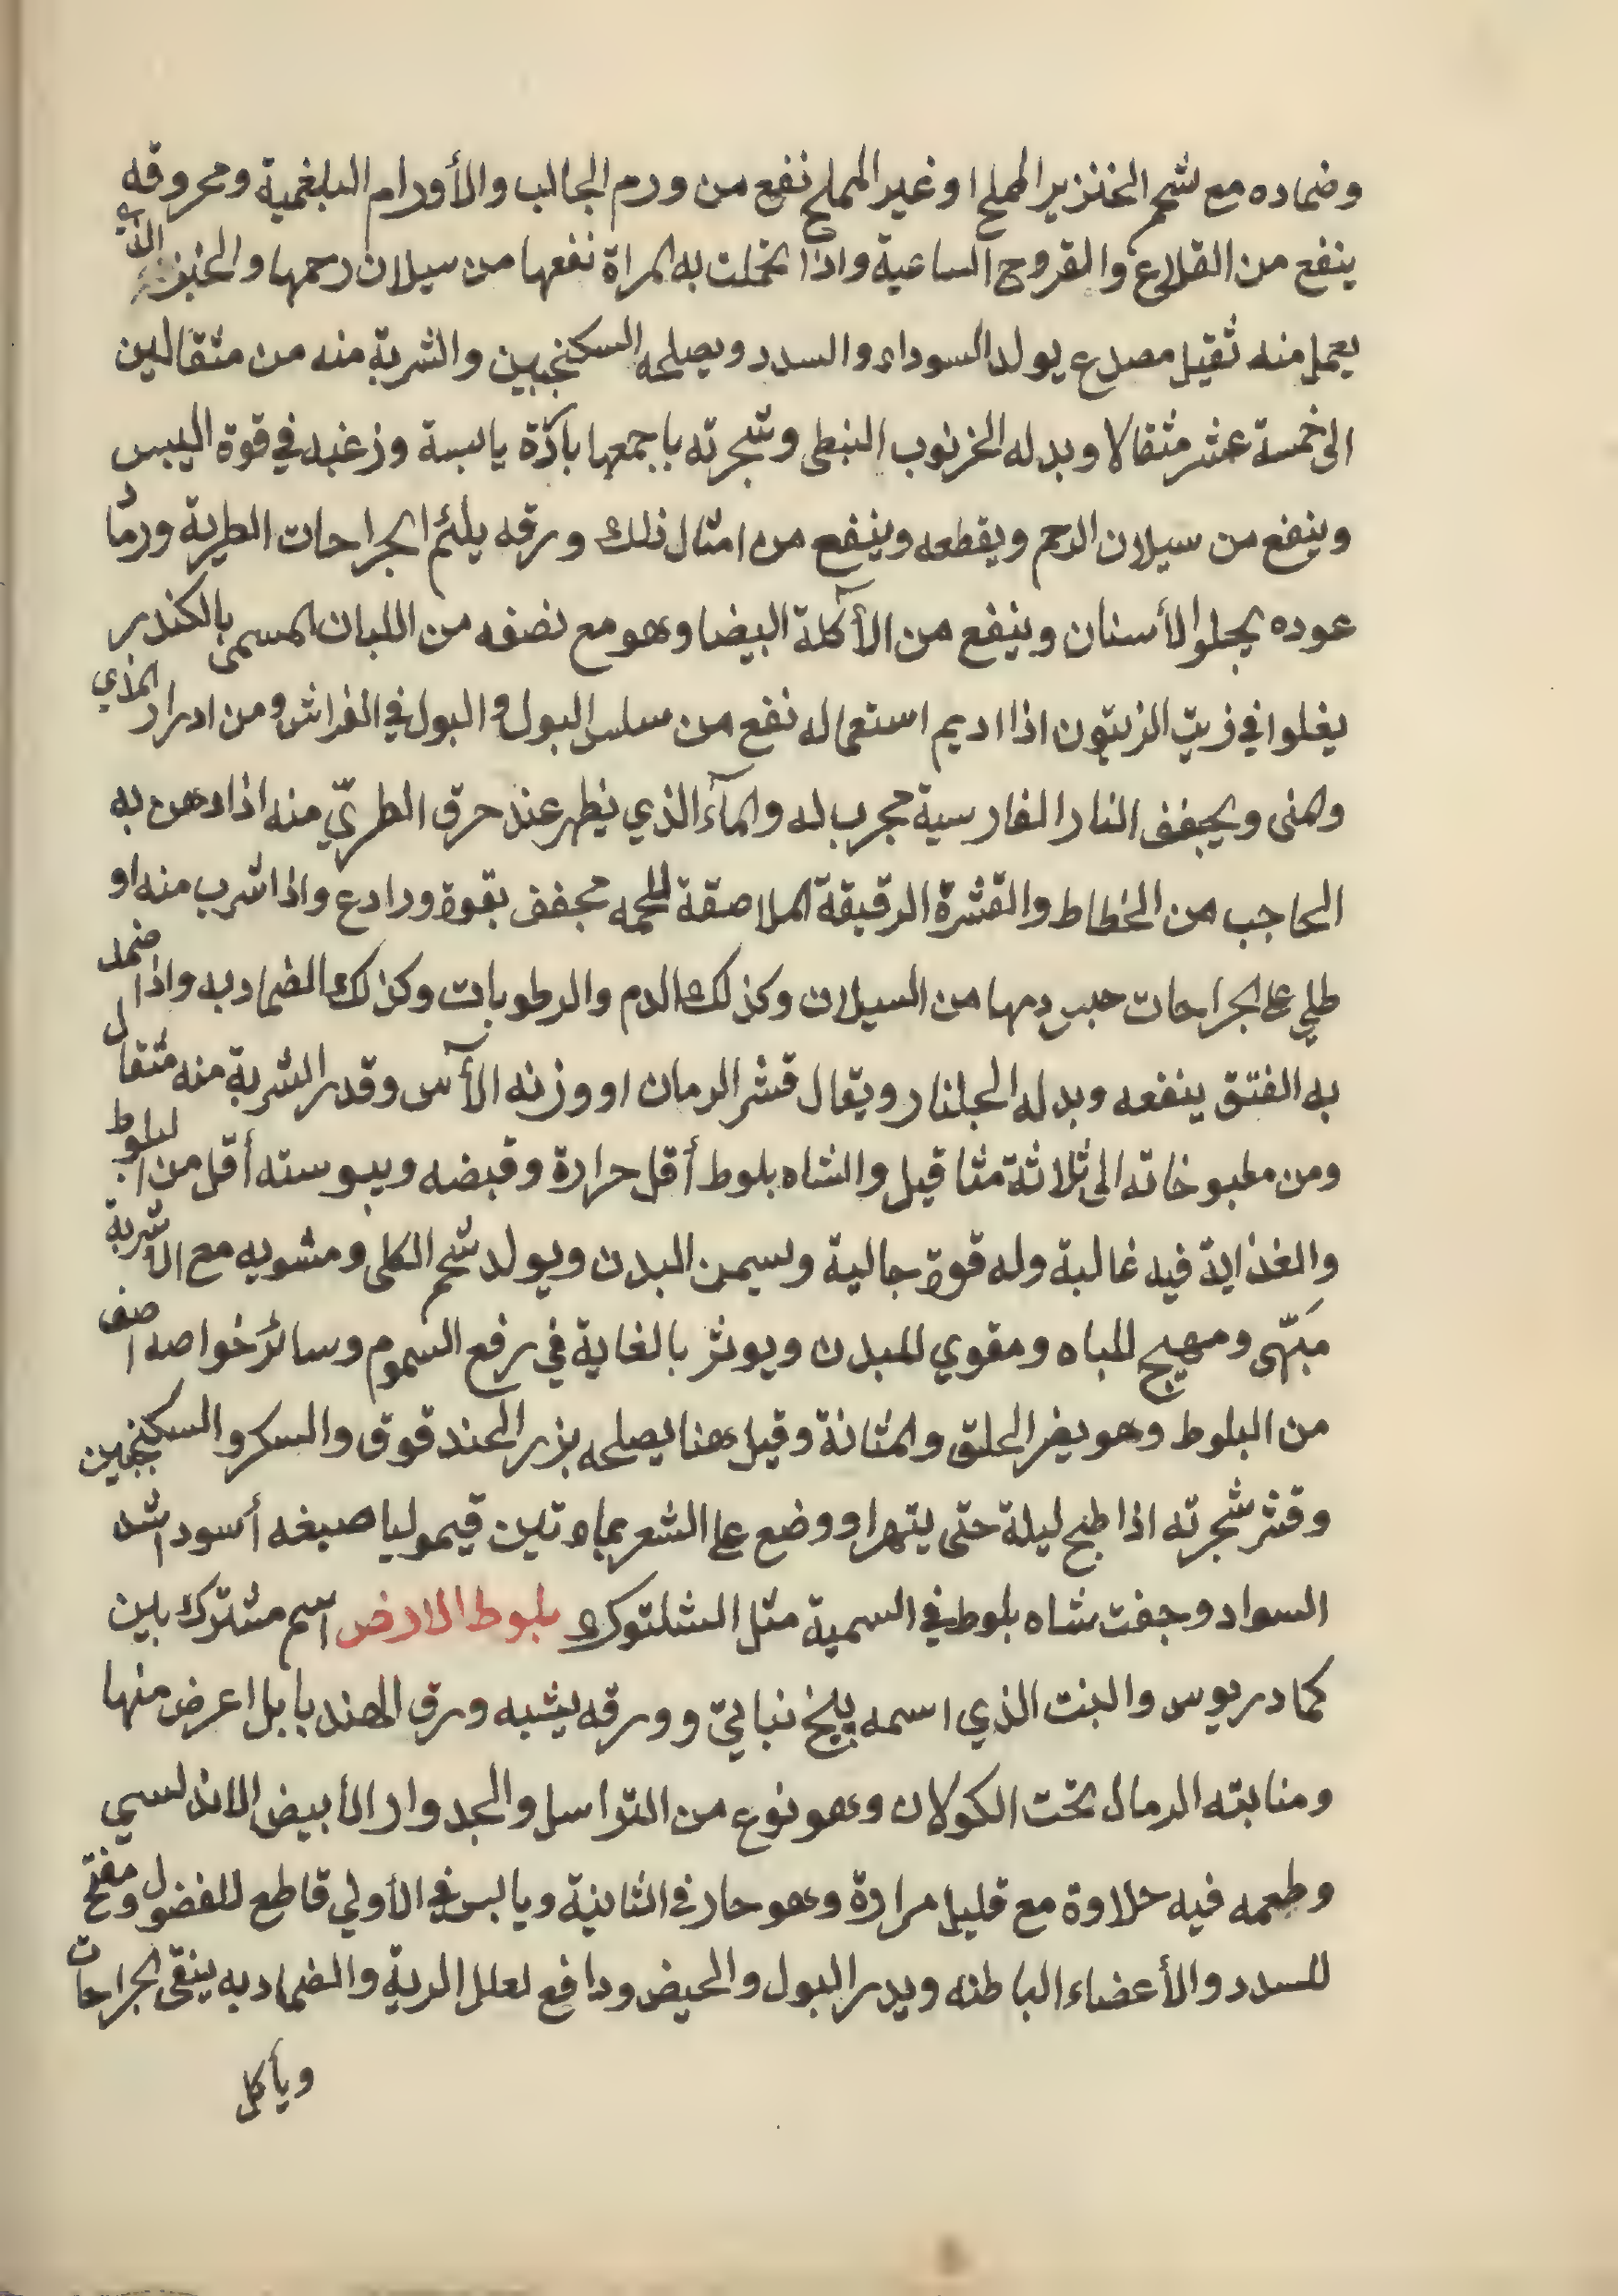 وضماده مع شحم الخنزير المملح او غير المملح نفع من ورم الجالب والأورام البلغمية ومحروقه
ينفع من القلاع والقروح الساعية واذا تحملت به المراة نفعها من سيلان رحمها والخبز الذي
يعمل منه ثقيل مصدع يولد السوداء والسدد ويصلحه السكنجبين والشربة منه من مثقالين
الى خمسة عشر مثقالا وبدله الخرنوب النبطى وشجرته باجمعها باردة يابسة وزغبه في قوة اليبس
وينفع من سيلان الرحم ويقطعه وينفع من امثال ذلك ورقه يلئم الجراحات الطرية ورماد
عوده يجلوا الأسنان وينفع من الأكلة البيضا وهو مع نصفه من اللبان المسمى بالكندر
يغلوا في زيت الزيتون اذا اديم استعماله نفع من سلس البول والبول في الفراش ومن ادرار المذي
والمنى ويجفف النار الفارسية مجرب له والمآء الذي يظهر عند حرق الطريّ منه اذا دهن به
الحاجب من الخطاط والقشرة الرقيقة الملاصقة للحمه مجفف بقوة ورادع واذا شرب منه او
طلي على الجراحات حبس دمها من السيلان وكذلك الدم والرطوبات وكذلك الضماد به واذا ضمد
به الفتق ينفعه وبدله الجلنار ويقال قشر الرمان او وزنه الآس وقدر الشربة منه مثقال
ومن مطبوخاته الى ثلاثة مثاقيل والشاه بلوط أقل حرارة وقبضه ويبوسته أقل من البلوط
والغذاية فيه غالبة وله قوة جالية وسيمن البدن ويولد شحم الكلى ومشويه مع الاشربة
مبّهى ومهيج للباه ومقوي للبدن ويوثر بالغاية في رفع السموم وسائر خواصه اضعف
من البلوط وهو يضر الحلق والمثانة وقيل هنا يصلحه بزر الحندقوق والسكر والسكنجبين
وقشر شجرته اذا طبخ ليلة حتى يتهرا ووضع على الشعر بماء تين قيموليا صبغه أسود اشد
السواد وجفت شاه بلوط في السمية مثل الشلتوك بلوط الارض اسم مشترك بين
كمادريوس والبنت الذي اسمه بليخ نباتيّ وورقه يشبه ورق الهندبا بل اعرض منها
ومنابته الرمال تحت الكولان وهو نوع من التراسل والجدوار الأبيض الاندلسي
وطعمه فيه حلاوة مع قليل مرارة وهو حار في الثانية ويابس في الأولي قاطع للفضول ومفتح
للسدد والأعضاء الباطنه ويدر البول والحيض ودافع لعلل الرية والضماد به ينقى الجراحات
ويأكل